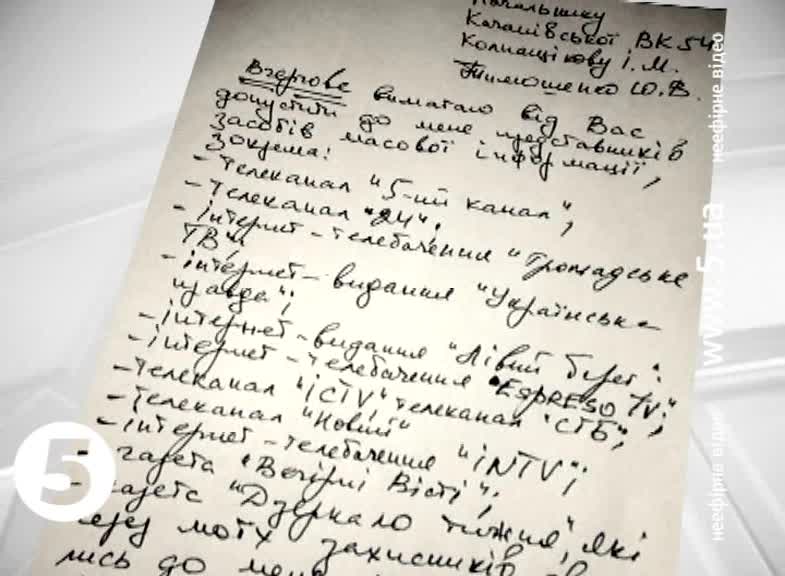 Начальнику
Качанівської ВК 54
Колпащікову І. М.
Тимошенко Ю. В.
Вчергове вимагаю від Вас
допустити до мене представників
засобів масової інформації,
зокрема:
- телеканал "5-ий канал",
- телеканал "24";
- інтернет-телебачення "Громадське
ТВ";
- інтернет-видання "Українська
правда";
- інтернет-видання "Лівий берег";
- інтернет-телебачення "ESPRESO TV";
- телеканал "ICTV", телеканал "СТБ";
- телеканал "Новий"
- інтернет-телебачення "iNTV";
- газета "Вечірні Вісті";
- газета "Дзеркало тижня", які
через моїх захисників
лись до мене
5
www.5.ua неефірне відео
неефірне відео